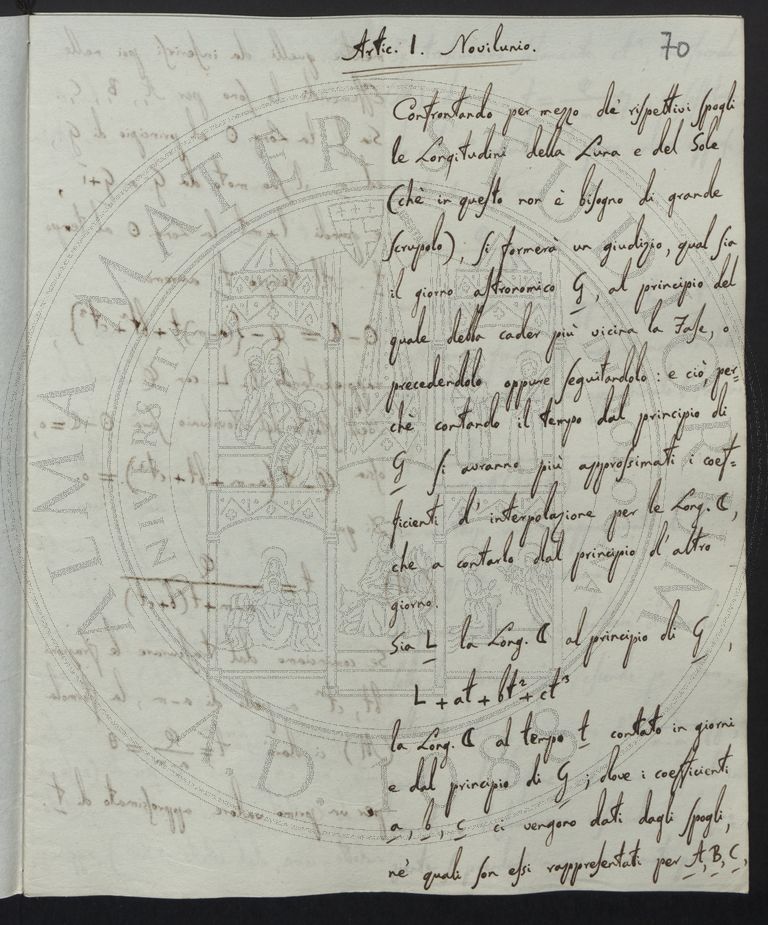 Artic. 1. Novilunio.
70
Confrontando per mezzo de' rispettivi spogli
le Longitudini della Luna e del Sole
(chè in questo non è bisogno di grande
scrupolo), si formerà un giudizio, qual sia
il giorno astronomico G, al principio del
quale debba cader più vicina la Fase, o
precedendolo oppure seguitandolo: e ciò, per=
chè contando il tempo dal principio di
G si avranno più approssimati i coef=
ficienti d'interpolazione per le Long. ☾,
che a contarlo dal principio d'altro
giorno.
Sia L la Long. ☾ al principio di G,
L + at + bt² + ct³
la Long. ☾ al tempo t contato in giorni
e dal principio di G; dove i coefficienti
a, b, c ci vengono dati dagli spogli,
ne' quali son essi rappresentati per A, B, C,
ALMA MATER STUDIORUM
A.D. 1088